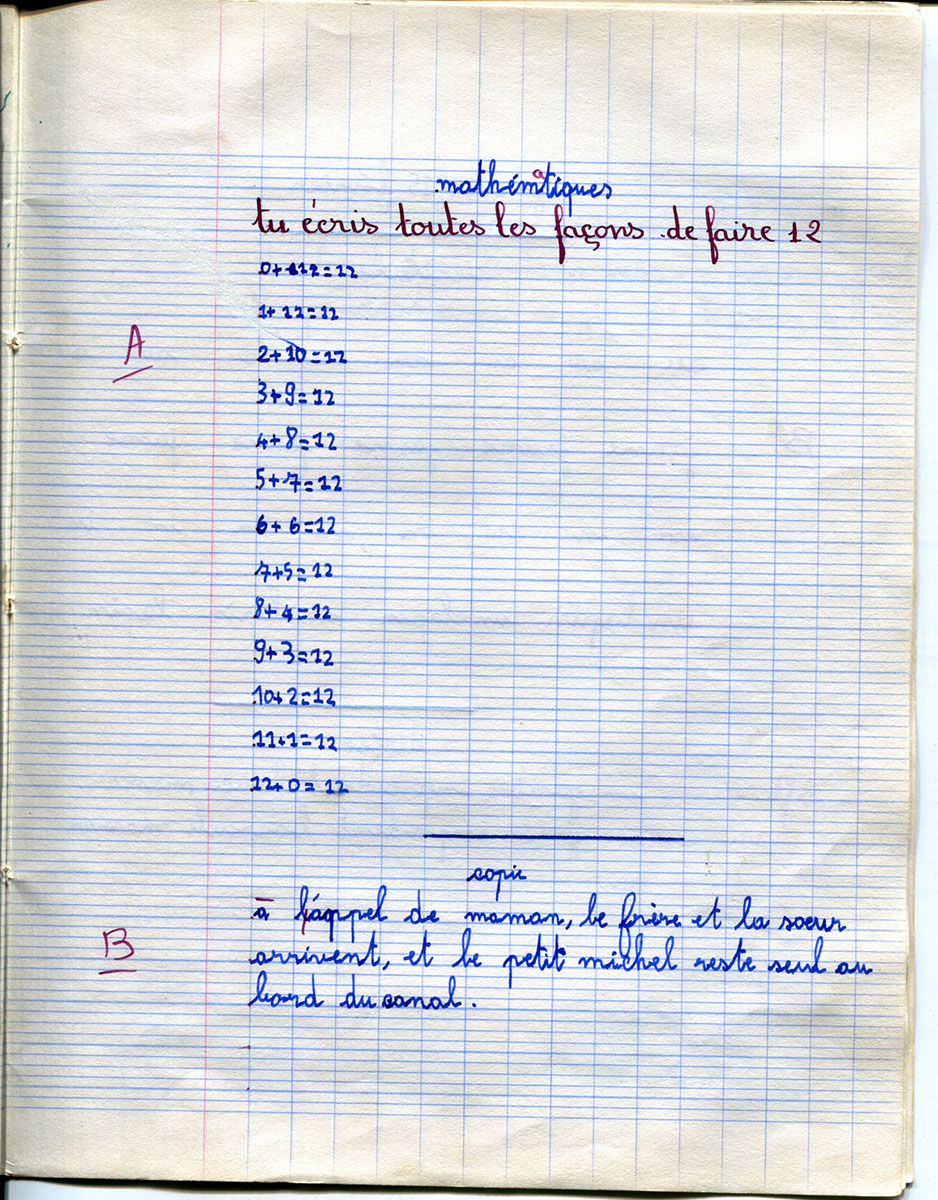 mathématiques
tu écris toutes les façons de faire 12
0+12=12
1+12=12
A
2+10=12
3+9=12
4+8=12
5+7=12
6+6=12
7+5=12
8+4=12
9+3=12
10+2=12
11+1=12
12+0=12
copie
à l'appel de maman, le frère et la soeur
B
arrivent, et le petit michel reste seul au
bord du canal.